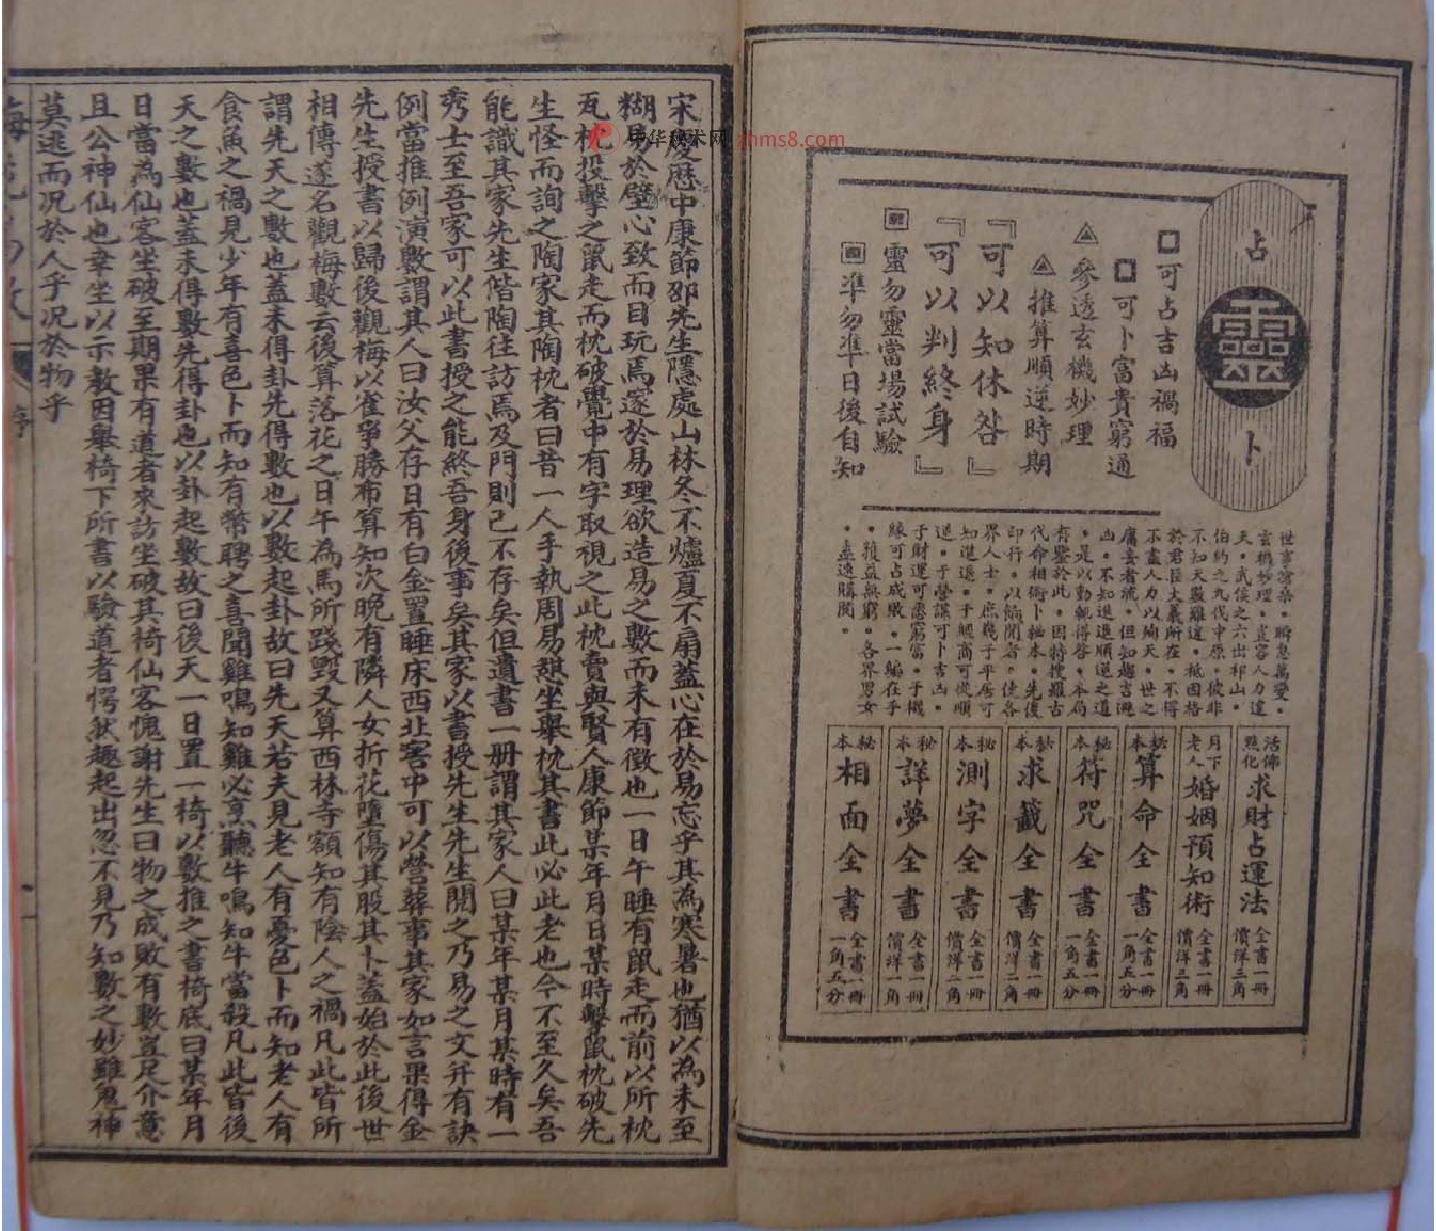 占靈卜
□可占吉凶禍福
□可卜富貴窮通
參透玄機妙理
推算順逆時期
『可以知休咎』
『可以判終身』
靈勿靈當場試驗
準勿準日後自知
世事滄桑。瞬息萬變。
玄機妙理。豈容人力違
天。武侯之六出祁山。
伯約之九伐中原。彼非
不知天數難違。祇因格
於君臣大義所在。不得
不盡人力以殉天。世之
庸妄者流。但知趨吉避
凶。不知進退順逆之道
。是以動輒得咎。本局
有鑒於此。因特搜羅古
代命相術卜秘本。先後
印行。以餉閱者。使各
界人士。庶幾于平居可
知進退。于趨向可從順
逆。于營謀可卜吉凶。
于財運可悉窮富。于機
緣可占成敗。一編在手
。獲益無窮。各界男女
。盍速購閱。
活佛點化 求財占運法 全書一冊 價洋三角
月下老人 婚姻預知術 全書一冊 價洋三角
秘本 算命全書 全書一冊 一角五分
秘本 符咒全書 全書一冊 一角五分
秘本 求籤全書 全書一冊 價洋二角
秘本 測字全書 全書一冊 價洋一角
秘本 詳夢全書 全書一冊 價洋一角
秘本 相面全書 全書一冊 一角五分
宋慶曆中康節邵先生隱處山林冬不爐夏不扇蓋心在於易忘乎其為寒暑也猶以為未至
糊易於壁心致而目玩焉邃於易理欲造易之數而未有徵也一日午睡有鼠走而前以所枕
瓦枕投擊之鼠走而枕破覺中有字取視之此枕賣與賢人康節某年月日某時擊鼠枕破先
生怪而詢之陶家其陶枕者曰昔一人手執周易憩坐舉枕其書此必此老也今不至久矣吾
能識其家先生偕陶往訪焉及門則已不存矣但遺書一冊謂其家人曰某年某月某時有一
秀士至吾家可以此書授之能終吾身後事矣其家以書授先生先生閱之乃易之文并有訣
例當推例演數謂其人曰汝父存日有白金置睡床西北窖中可以營葬事其家如言果得金
先生授書以歸後觀梅以雀爭勝布算知次晚有隣人女折花墮傷其股其卜蓋始於此後世
相傳遂名觀梅數云後算落花之日午為馬所踐毀又算西林寺額知有陰人之禍凡此皆所
謂先天之數也蓋未得卦先得數也以數起卦故曰先天若夫見老人有憂色卜而知老人有
食魚之禍見少年有喜色卜而知有幣聘之喜聞雞鳴知雞必烹聽牛鳴知牛當殺凡此皆後
天之數也蓋未得數先得卦也以卦起數故曰後天一日置一椅以數推之書椅底曰某年月
日當為仙客坐破至期果有道者來訪坐破其椅仙客愧謝先生曰物之成敗有數豈足介意
且公神仙也幸坐以示教因舉椅下所書以驗道者愕然趨起出忽不見乃知數之妙雖鬼神
莫逃而況於人乎況於物乎
序
中华秘术网 zhms8.com